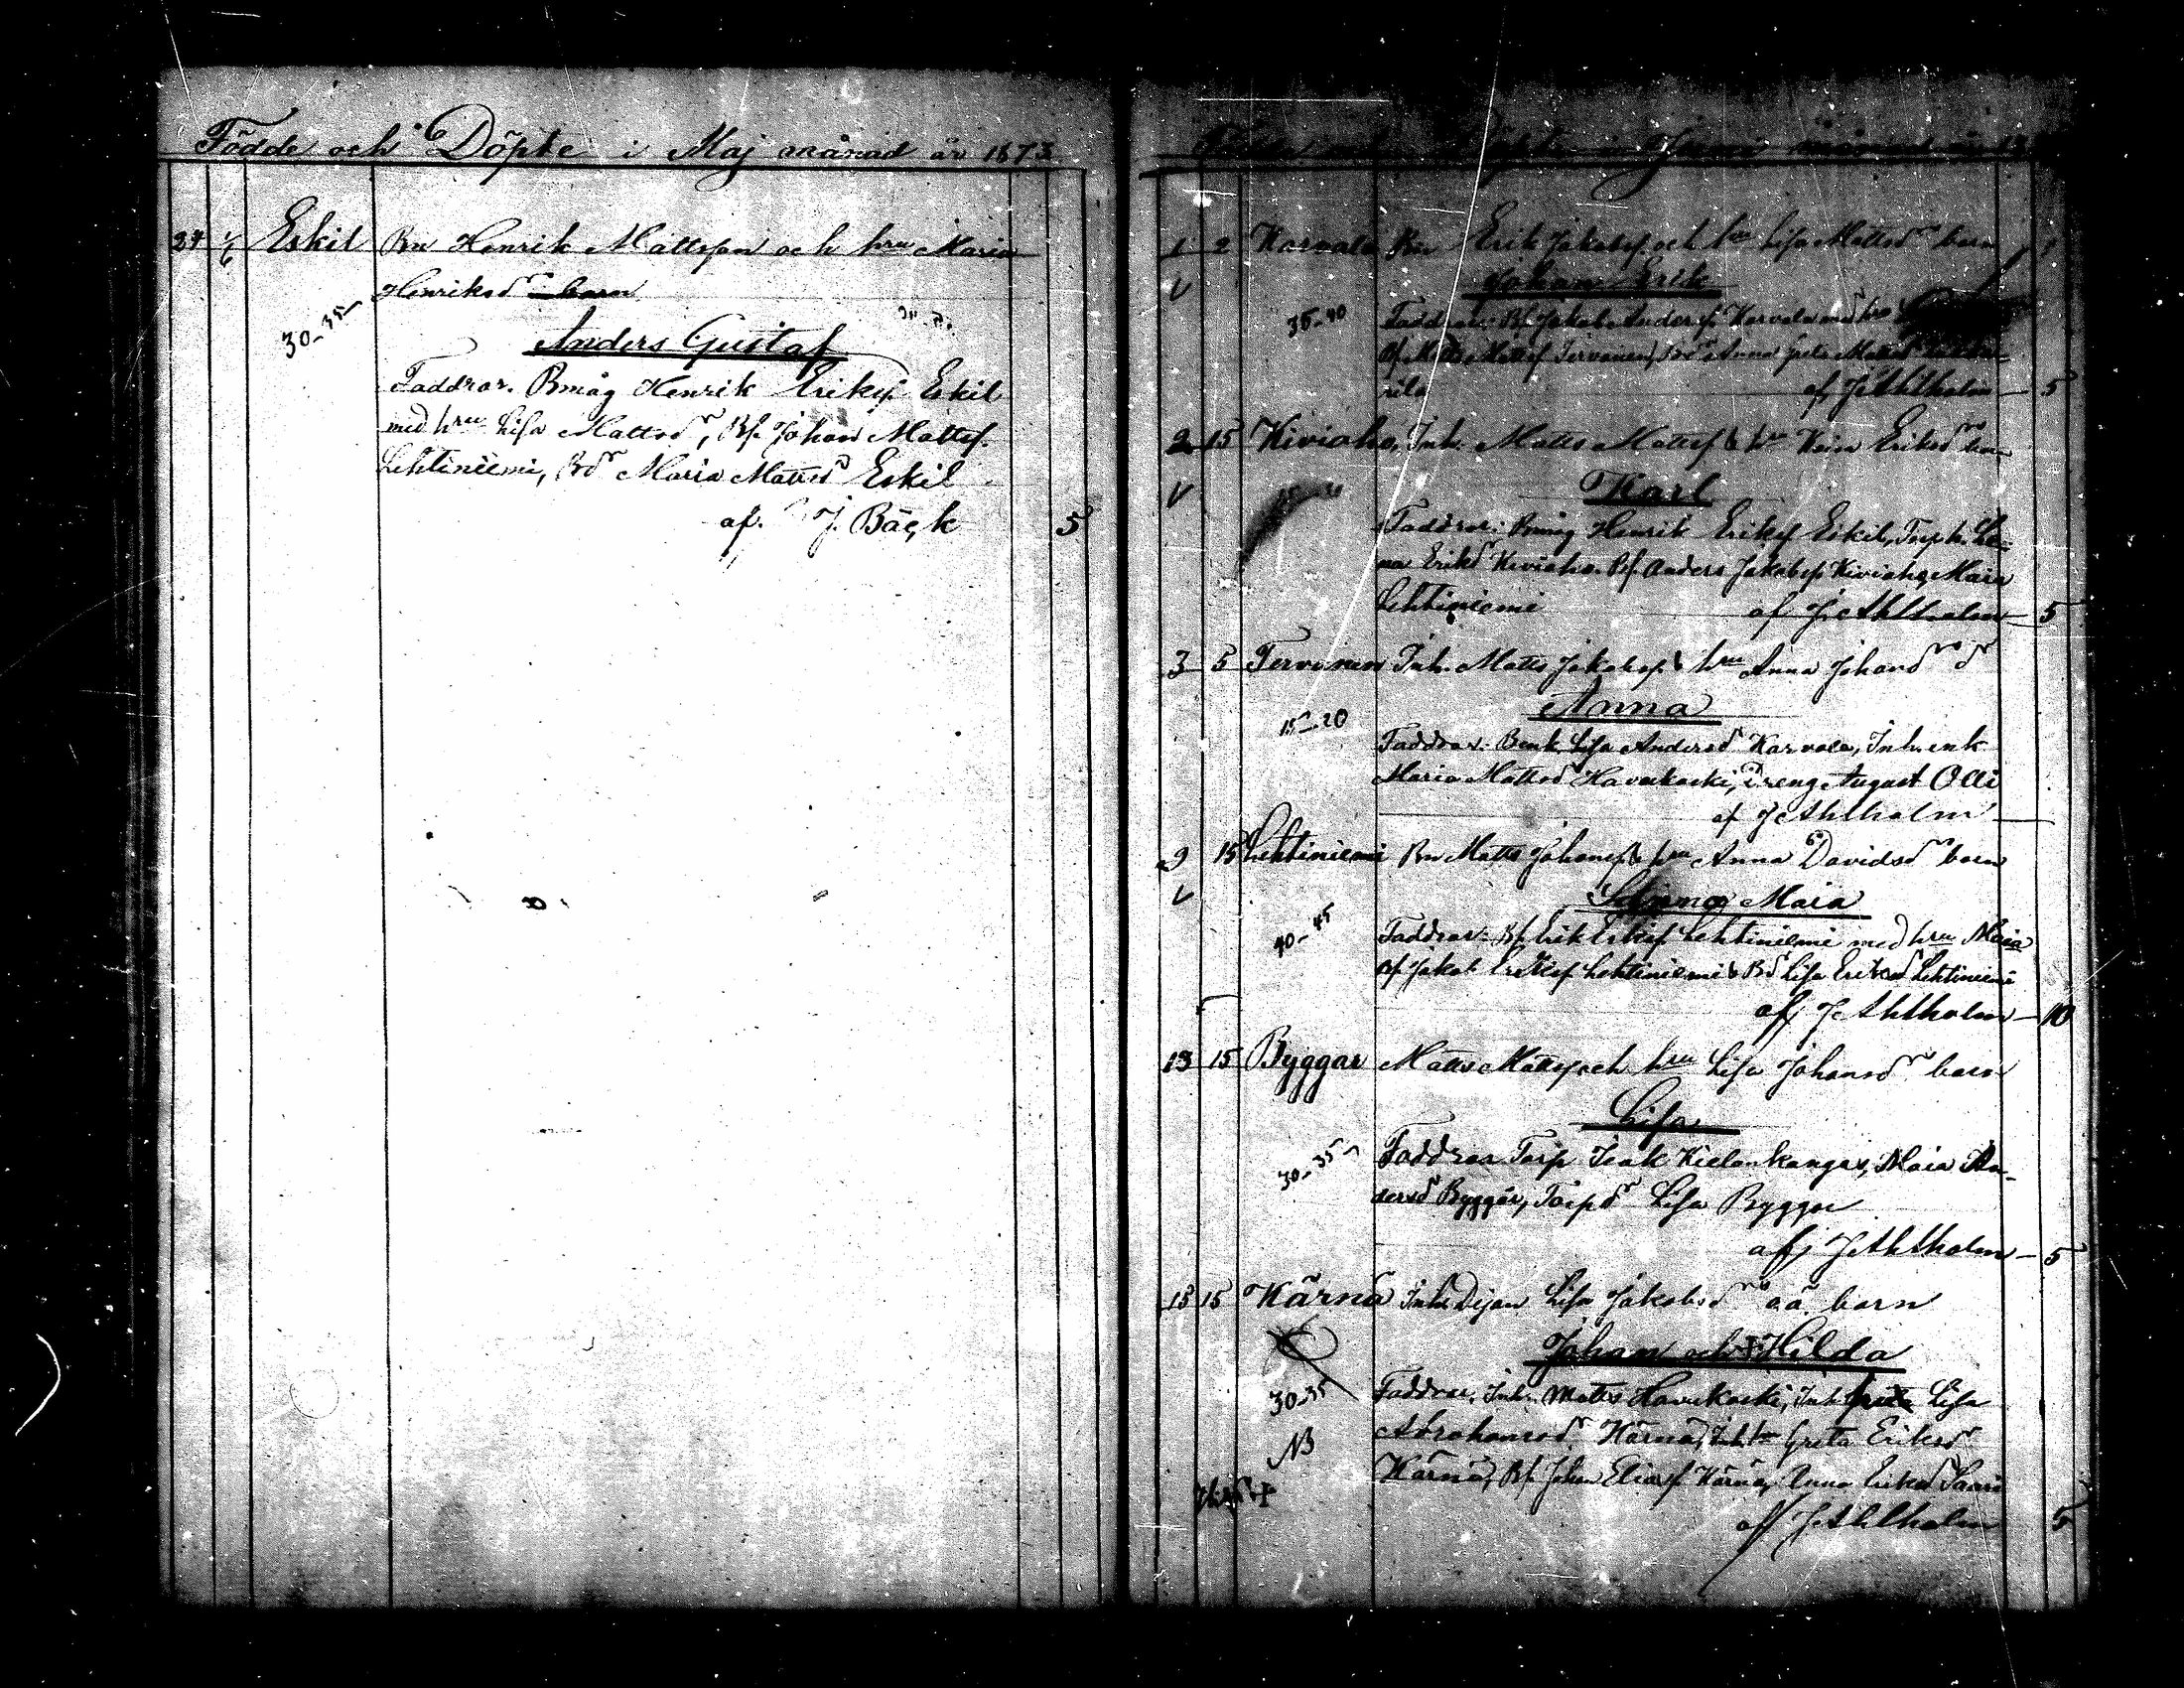 Födde och Döpte i Maj månad år 1873
27 1/6 Eskil Bn Henrik Mattsson och hru Maria
Henriksdr barn
30-35
Anders Gustaf
Faddrar. Bmåg Henrik Erikss. Eskil
med hru Lisa Mattsdr, Bs. Johan Mattss.
Lehtiniemi, Bdr Maria Mattsd Eskil
af. J. Bäck 5
Födde och Döpte i Juni månad år 18
1 2 Karvala Bn Erik Jakobss. och hru Lisa Mattsdr barn 1
V Johan Erik
35-40 Faddrar: Bs. Jakob Anderss. Karvala med hru
Bs. Matts Mattss. Tervonen, Bdr Anna Greta Mattsd
rila af J Ahlholm 5
2 15 Kiviaho, Inh. Matts Mattss. & hru Kaisa Eriksdr barn
V Karl
Faddrar: Bmåg Henrik Eriks. Eskil, Torp. h. Le-
na Eriksdr Kiviaho. Bs. Anders Jakobss Kiviaho, Maria
Lehtiniemi af J Ahlholm 5
3 5 Tervonen Inh. Matts Jakobss. & hru Anna Johansdr dr
Anna
15-20 Faddrar: Benk. Lisa Andersdr Karvala, Inh. enk
Maria Mattsd Havukoski, Dreng August Olli
af J Ahlholm
9 15 Lehtiniemi Bn Matts Johanss. & hru Anna Davidsdr barn
V Maia
40-45 Faddrar: Bs. Erik Erikss. Lehtiniemi med hru Maia
Bs. Jakob Erikss. Lehtiniemi & Bdr Lisa Eriksdr Lehtiniemi
af J Ahlholm 10
13 15 Byggar Matts Mattss. och hru Lisa Johansdr barn
Lisa
30-35 Faddrar Torp Isak Kielonkangas, Maia An-
dersdr Byggar, Torpdr Lisa Byggar
af J Ahlholm 5
15 15 Kärnä Inh. Lisa Jakobsdr o.ä. barn
Johan och + Hilda
30-35 Faddrar. Inh. Matts Havukoski, Inh. Lisa
NB Abrahamsdr Kärnä, Inh. hu Greta Eriksdr
Kärnä, Bs. Johan Eliass. Kärnä, Anna Eriksd Saari
af J Ahlholm 5